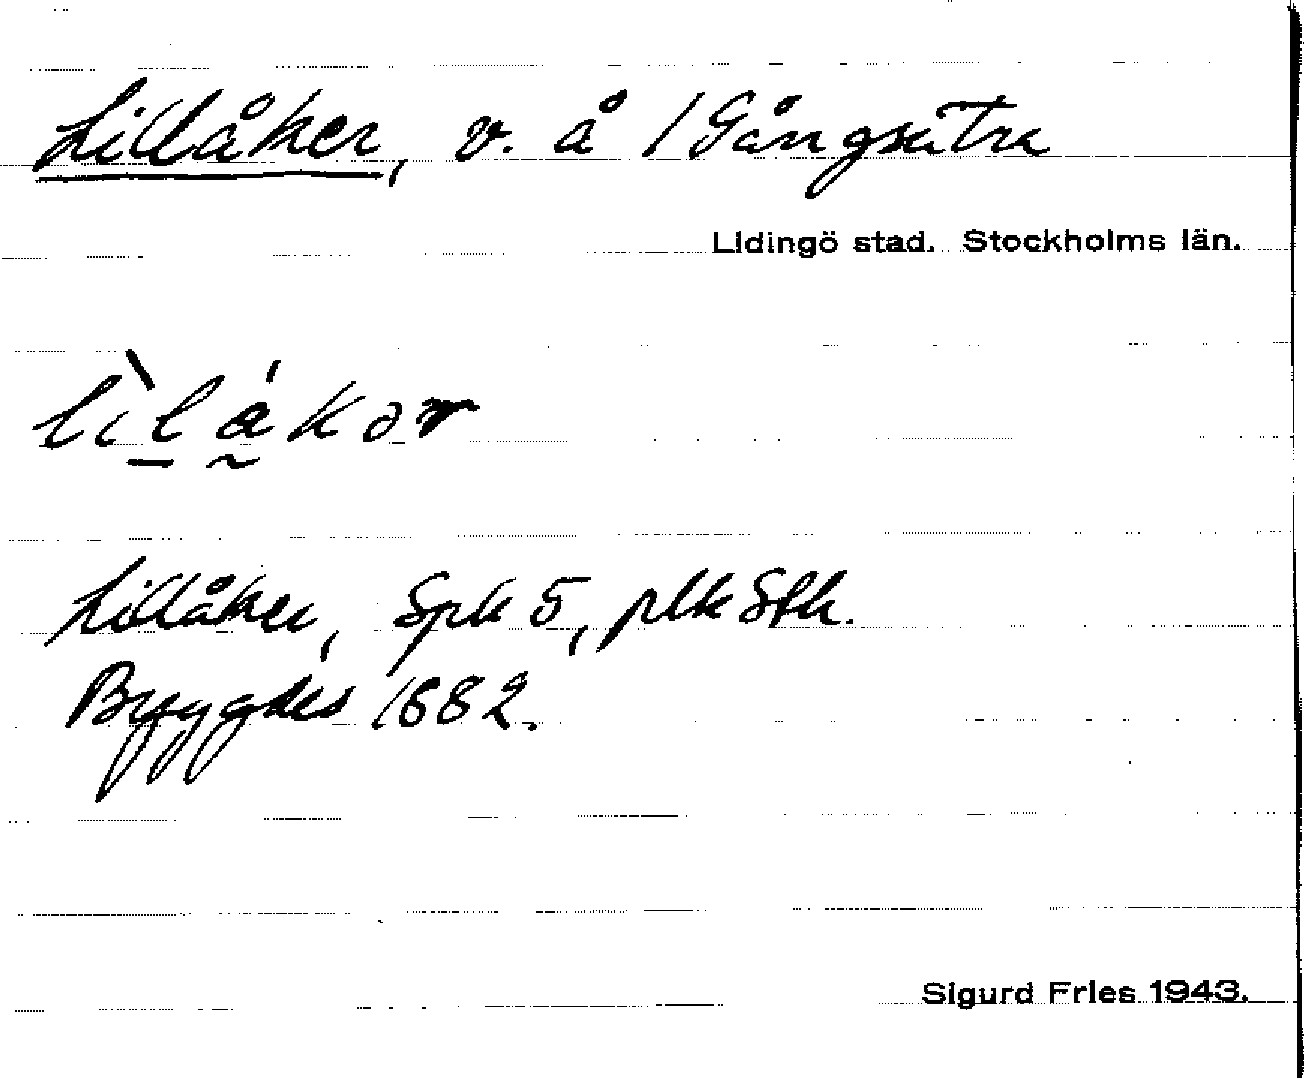 Lillåker, v. å / Gångsätra
Lidingö stad. Stockholms län.
lìlåkər
Lillåker, Spk 5, plk Sth.
Byggdes 1882.
Sigurd Fries 1943.